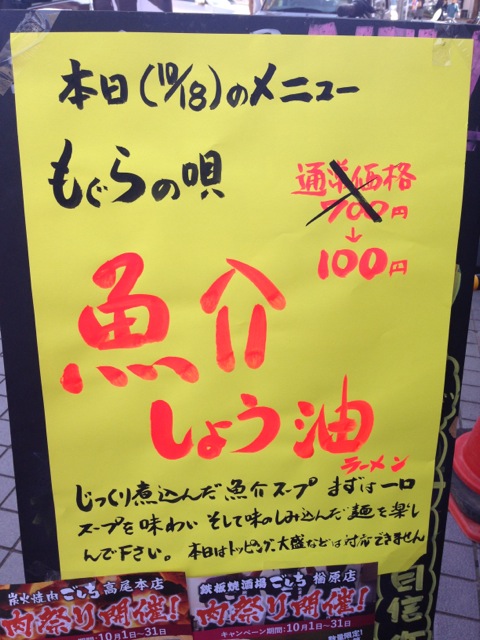 本日(10/18)のメニュー
もぐらの唄
通常価格
700円
↓
100円
魚介
しょう油
ラーメン
じっくり煮込んだ魚介スープ まずは一口
スープを味わい そして味のしみ込んだ麺を楽し
んで下さい。 本日はトッピング、大盛などは対応できません
自信
炭火焼肉 ごしち 高尾本店
肉祭り開催!
期間:10月1日~31日
鉄板焼酒場 ごしち 楢原店
肉祭り開催!
数量限定!
キャンペーン期間:10月1日~31日